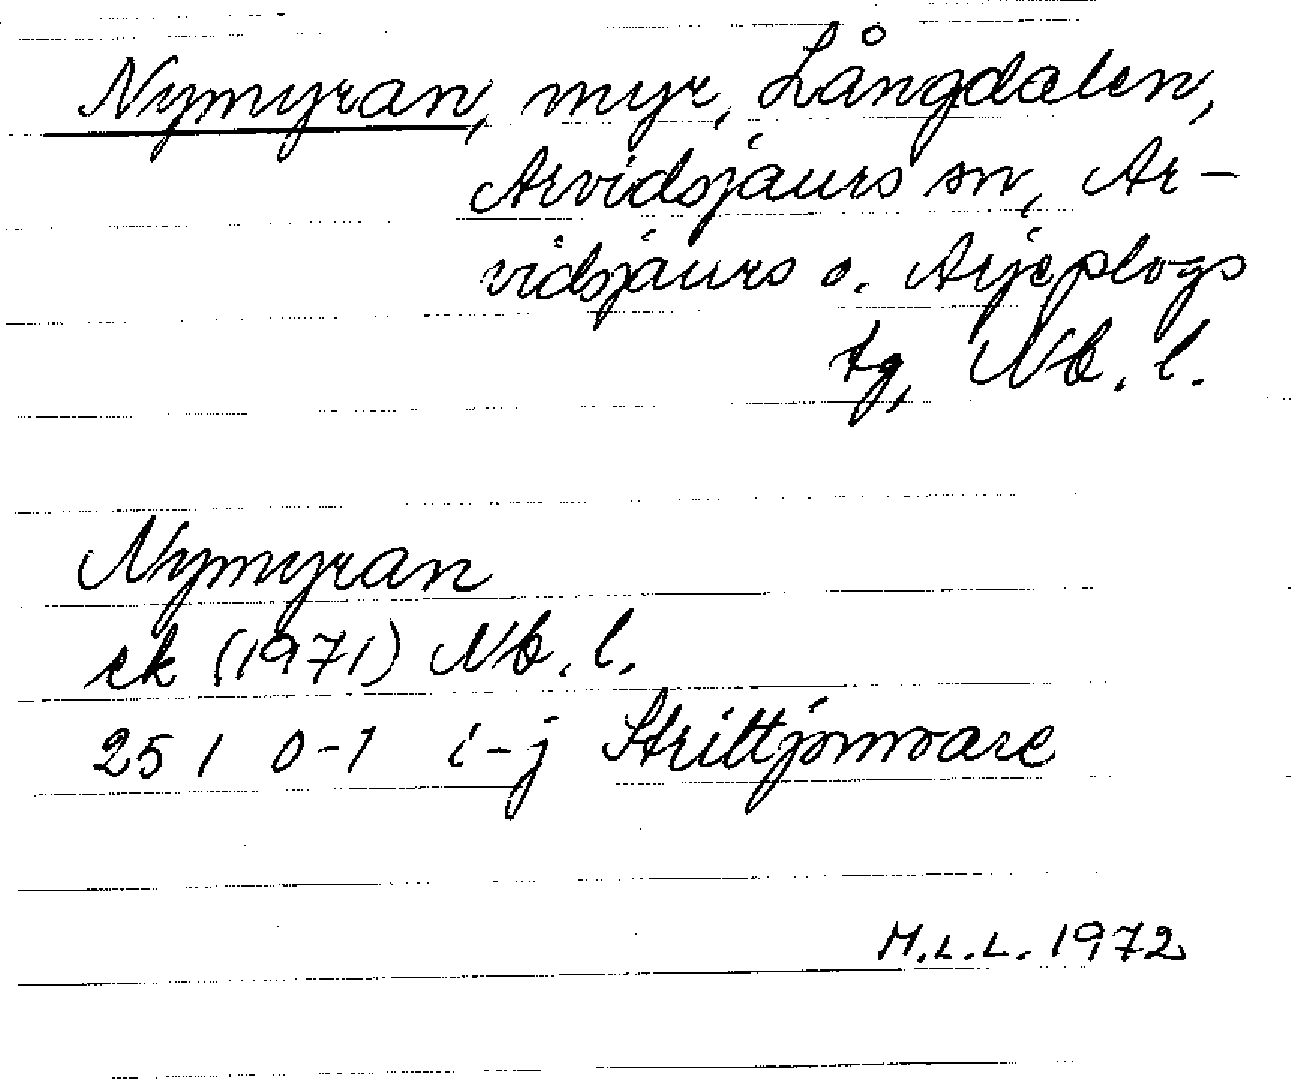 Nymyran, myr, Långdalen,
Arvidsjaurs sn, Ar-
vidsjaurs o. Arjeplogs
tg, Nb. l.
Nymyran
ek (1971) Nb. l.
25 I 0-1 i-j Strittjomvare
M.L.L. 1972